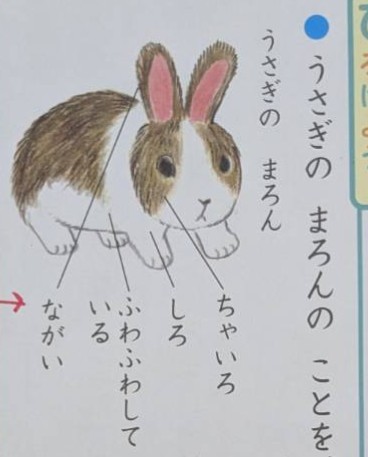 ● うさぎの　まろんの　ことを
うさぎの　まろん
ちゃいろ
しろ
ふわふわして
いる
ながい